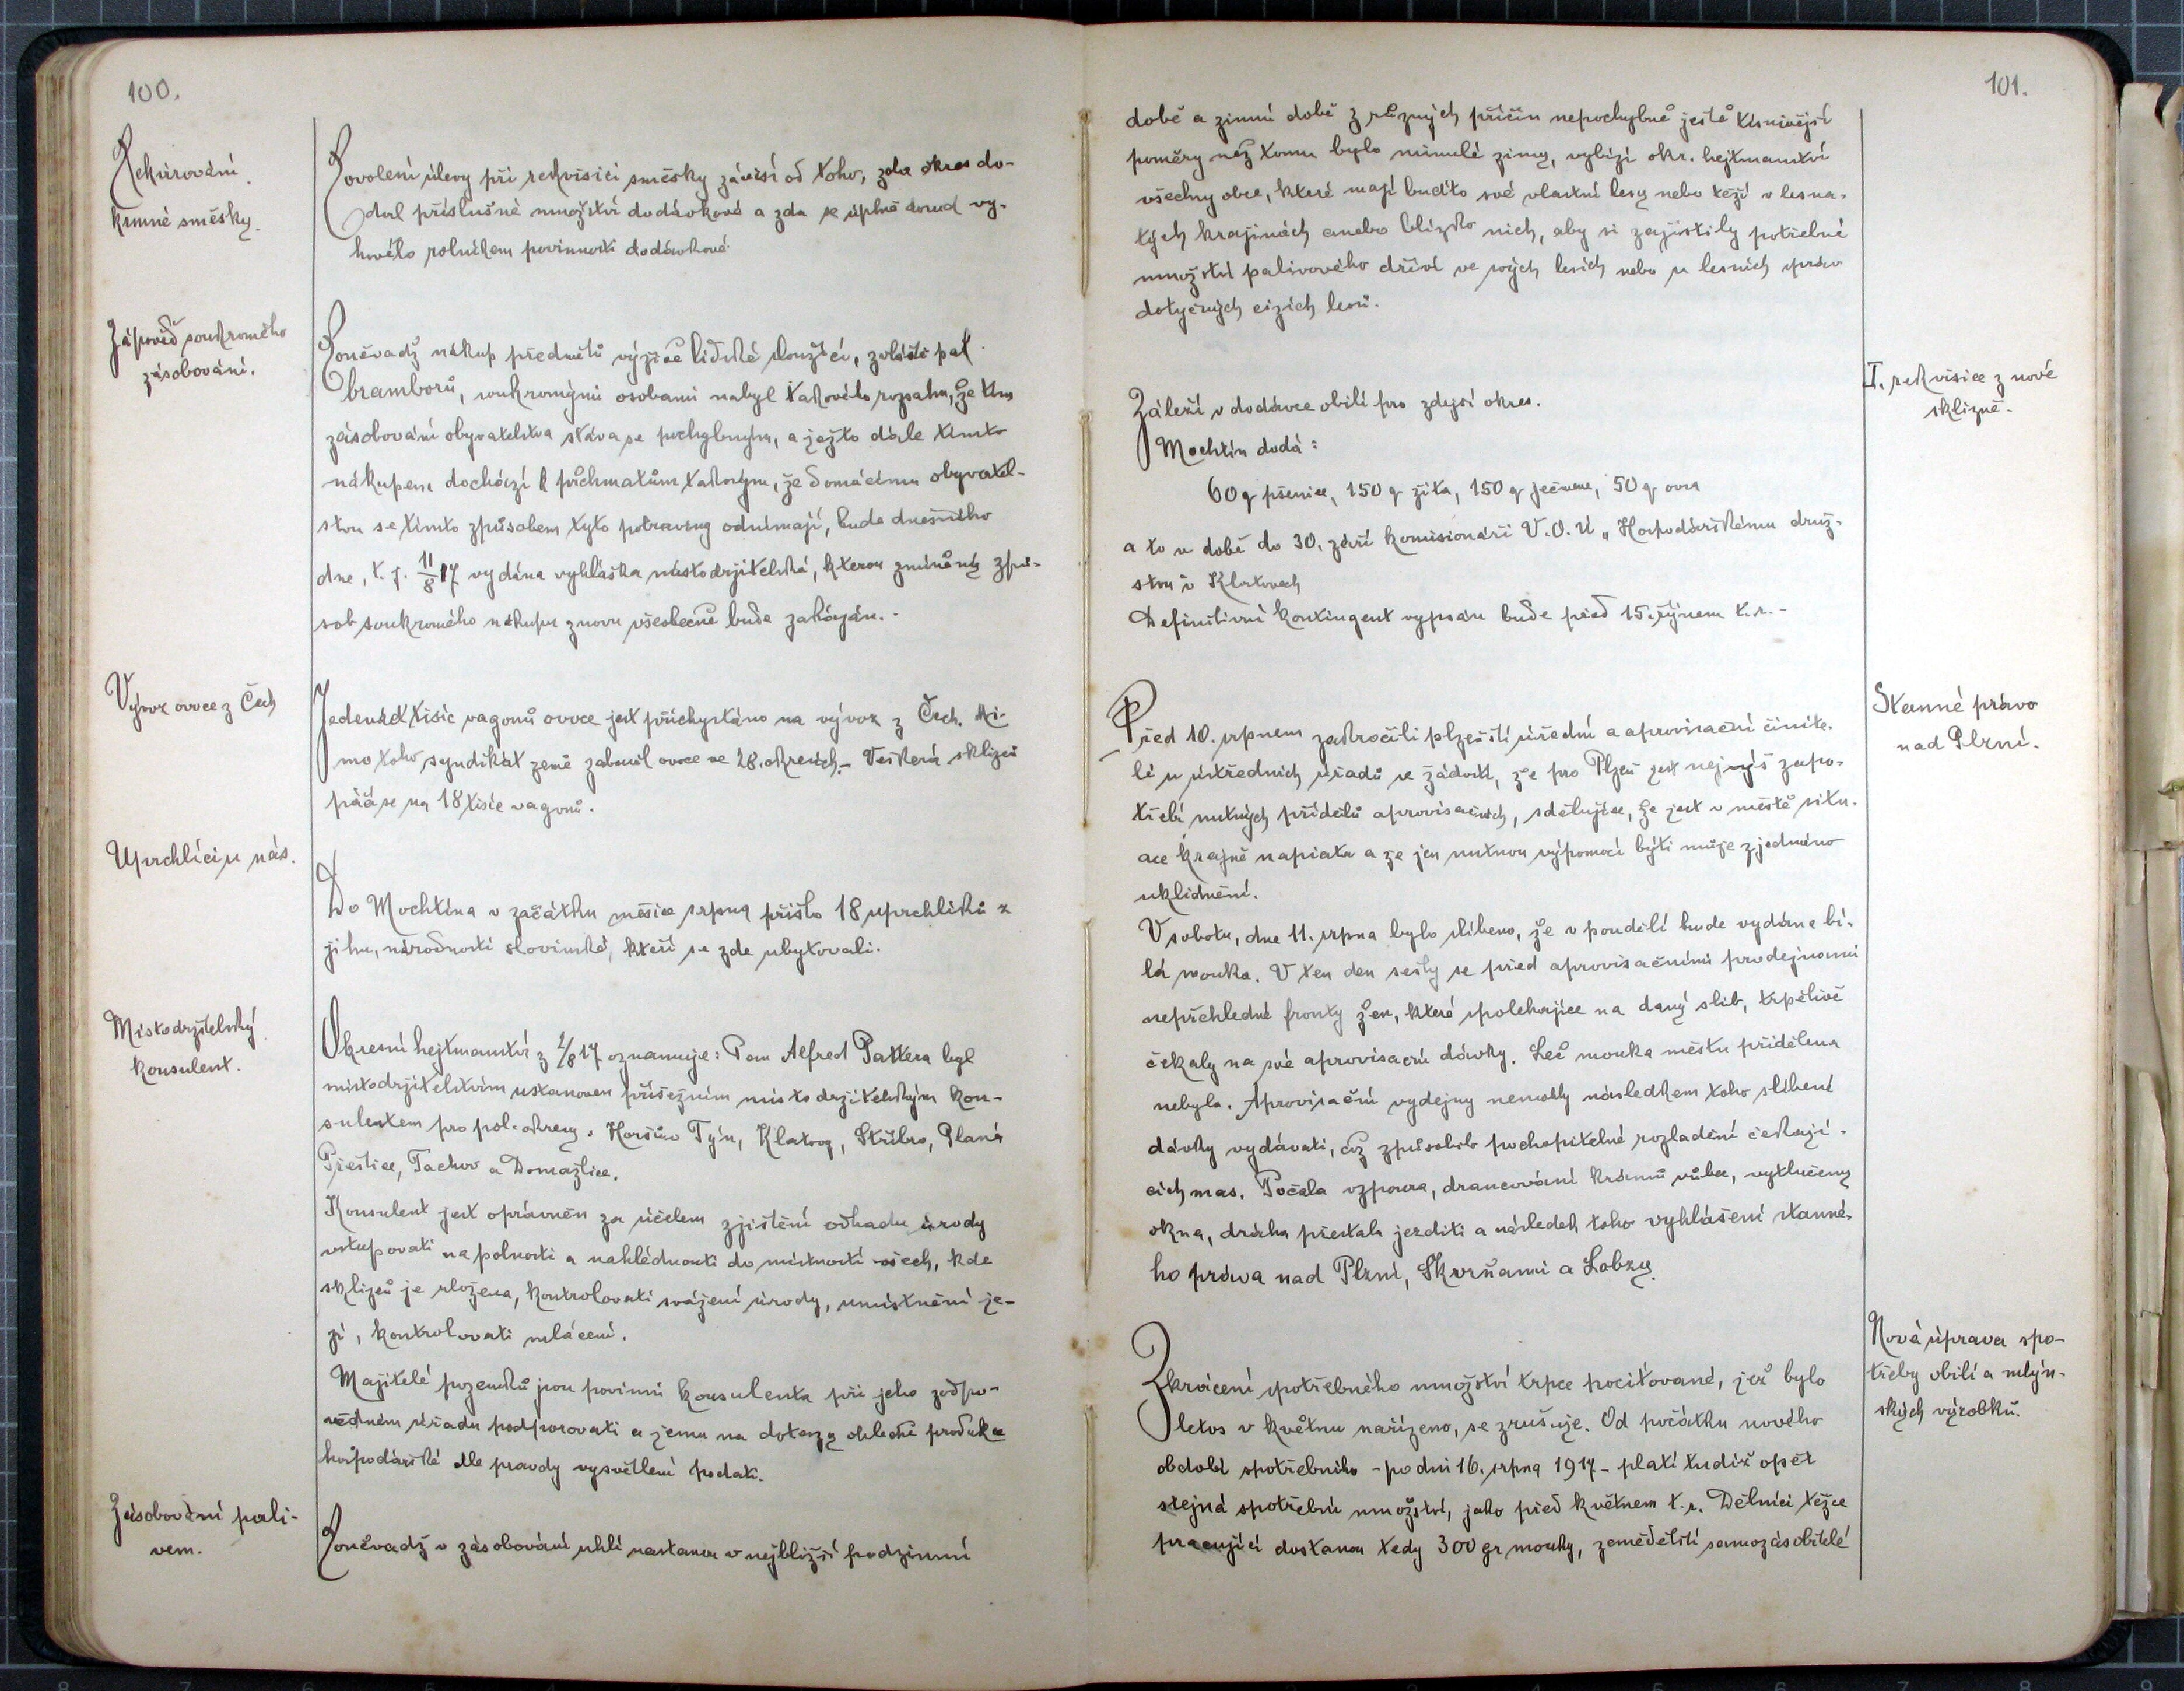 100.
Rekvirování
krmné směsky.
Povolení úlevy při rekvisici směsky závisí od toho, zda okres do-
dal příslušné množství dodávkové a zda se úplně dosud vy-
hovělo rolníkem povinnosti dodávkové.
Zápověď soukromého
zásobování.
Poněvadž nákup předmětů výživě lidské sloužící, zvláště pak
bramborů, soukromými osobami nabyl takového rozsahu, že tím
zásobování obyvatelstva stává se pochybným, a ježto dále tímto
nákupem dochází k průchmatům takovým, že domácímu obyvatel-
stvu se tímto způsobem tyto potraviny odnímají, bude dnešního
dne, t. j. 11/8 17 vydána vyhláška místodržitelská, kterou zmíněný způ-
sob soukromého nákupu znovu všeobecně bude zakázán.-
Vývoz ovoce z Čech
Jedenáct tisíc vagonů ovoce jest přichystáno na vývoz z Čech. Mi-
mo toho syndikát země zabavil ovoce ve 28. okresích.- Veškerá sklizeň
páčí se na 18 tisíc vagonů.
Uprchlíci u nás.
Do Mochtína v začátku měsíce srpna přišlo 18 uprchlíků z
jihu, národnosti slovinské, kteří se zde ubytovali.
Místodržitelský
konsulent.
Okresní hejtmanství z 2/8 17 oznamuje: Pan Alfred Pattera byl
místodržitelstvím ustanoven přísežním místodržitelským kon-
sulentem pro pol. okresy: Horšův Týn, Klatovy, Stříbro, Planá
Přeštice, Tachov a Domažlice.
Konsulent jest oprávněn za účelem zjištění odhadu úrody
vstupovati na polnosti a nahlédnouti do místností všech, kde
sklizeň je složena, kontrolovati svážení úrody, umístnění je-
jí, kontrolovati mlácení.
Majitelé pozemků jsou povinni konsulenta při jeho zodpo-
vědném úřadu podporovati a jemu na dotazy ohledně produkce
hospodářské dle pravdy vysvětlení podati.
Zásobování pali-
vem.
Poněvadž v zásobování uhlí nastanou v nejbližší podzimní
101.
době a zimní době z různých příčin nepochybně ještě tísnivější
poměry než tomu bylo minulé zimy, vybízí okr. hejtmanství
všechny obce, které mají buďto své vlastní lesy nebo leží v lesna-
tých krajinách anebo blízko nich, aby si zajistily potřebné
množství palivového dříví ve svých lesích nebo u lesních správ
dotyčných cizích lesů.
I. rekvisice z nové
sklizně.
Záleží v dodávce obilí pro zdejší okres.
Mochtín dodá:
60 q pšenice, 150 q žita, 150 q ječmene, 50 q ovsa
a to v době do 30. září komisionáři V.O.Ú „Hospodářskému druž-
stvu v Klatovech
Definitivní kontingent vypsán bude před 15. říjnem t.r.-
Stanné právo
nad Plzní.
Před 10. srpnem zakročili plzeňští úřední a aprovisační činite-
lé u ústředních úřadů se žádostí, že pro Plzeň jest nejvýš zapo-
třebí nutných přídělů aprovisačních, sdělujíce, že jest v městě situ-
ace krajně napiata a že jen nutnou výpomocí býti může zjednáno
uklidnění.
V sobotu, dne 11. srpna bylo slíbeno, že v pondělí bude vydána bí-
lá mouka. V ten den sešly se před aprovisačními prodejnami
nepřehledné fronty žen, které spolehajíce na daný slib, trpělivě
čekaly na své aprovisační dávky. Leč mouka městu přidělena
nebyla. Aprovisační vydejny nemohly následkem toho slíbené
dávky vydávati, což způsobilo pochopitelné rozladění čekají-
cích mas. Počala vzpoura, drancování krámů vůbec, vytlučeny
okna, dráha přestala jezditi a následek toho vyhlášení stanné-
ho práva nad Plzní, Skvrňami a Lobzy.
Nová úprava spo-
třeby obilí a mlýn-
ských výrobků.
Zkrácení spotřebného množství trpce pociťované, jež bylo
letos v květnu nařízeno, se zrušuje. Od počátku nového
období spotřebního - po dni 16. srpna 1917 - platí tudíž opět
stejná spotřební množství, jako před květnem t.r. Dělníci těžce
pracující dostanou tedy 300 gr mouky, zemědělští samozásobitelé